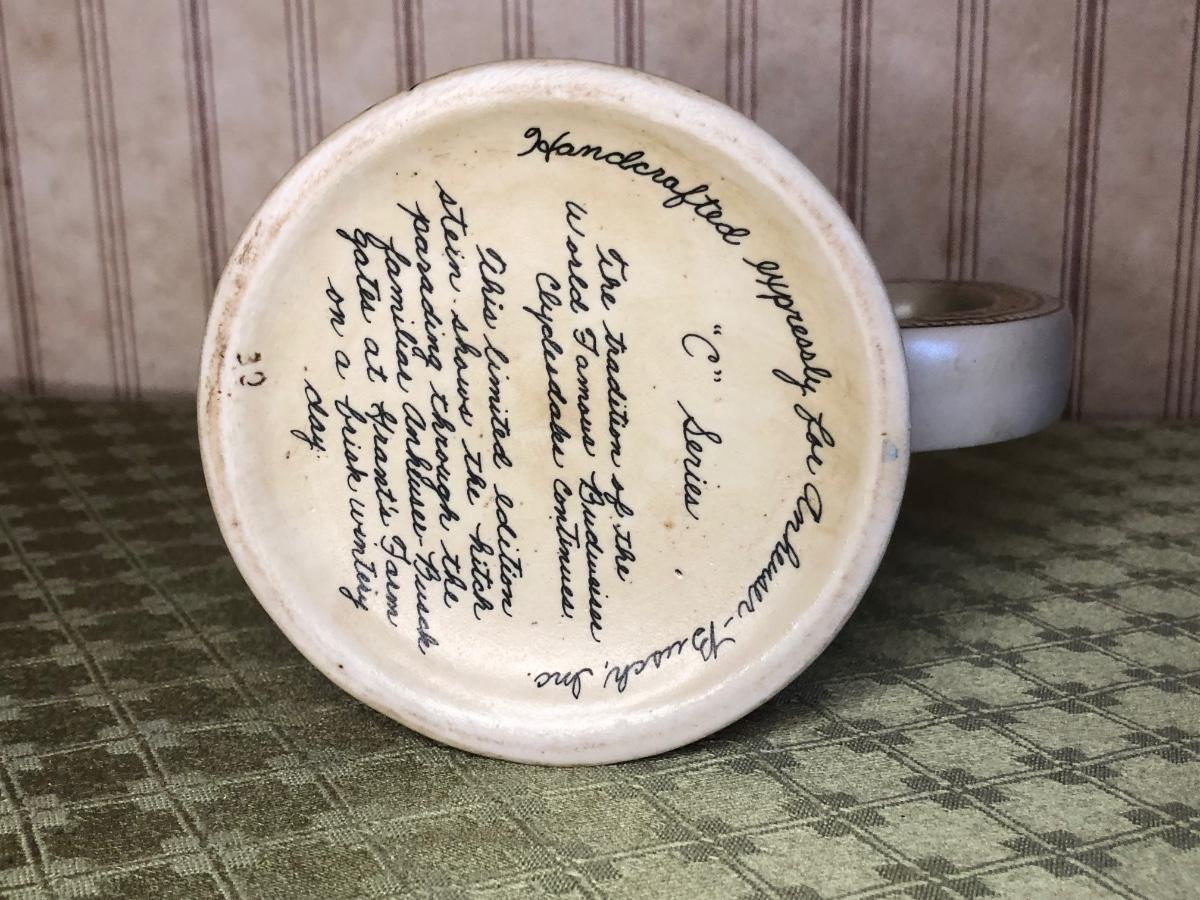 Handcrafted expressly for Anheuser-Busch, Inc.
"C" Series
The tradition of the
World Famous Budweiser
Clydesdales continues.
This limited edition
stein shows the hitch
parading through the
familiar Anheuser-Busch
gates at Grant's Farm
on a brisk wintery
day.
30